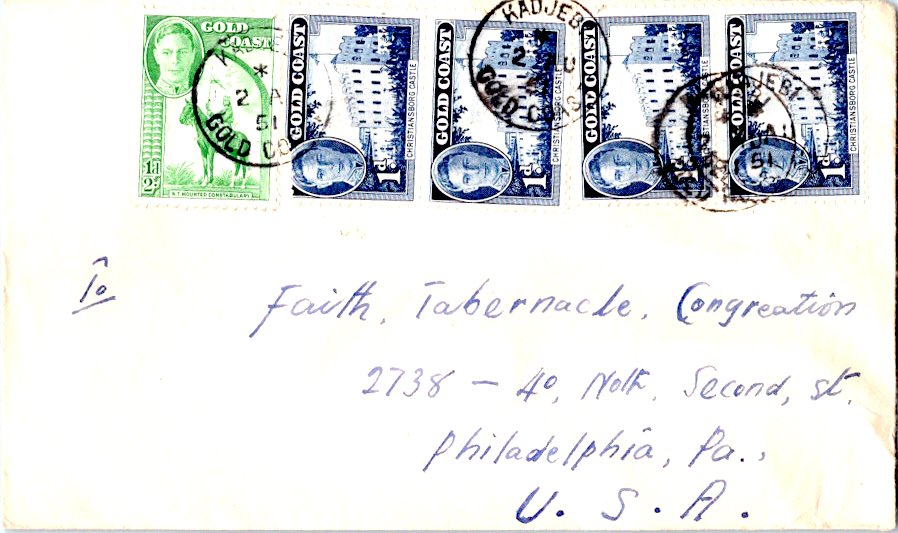 GOLD COAST
½d
N.T. MOUNTED CONSTABULARY
GOLD COAST
CHRISTIANSBORG CASTLE
1d
GOLD COAST
1d
GOLD COAST
CHRISTIANSBORG CASTLE
1d
GOLD COAST
CHRISTIANSBORG CASTLE
1d
51
GOLD CO
KADJEBI
GOLD COAS
51
To
Faith, Tabernacle, Congreation
2738 – 40, Noth, Second, st.
Philadelphia, Pa.,
U. S. A.